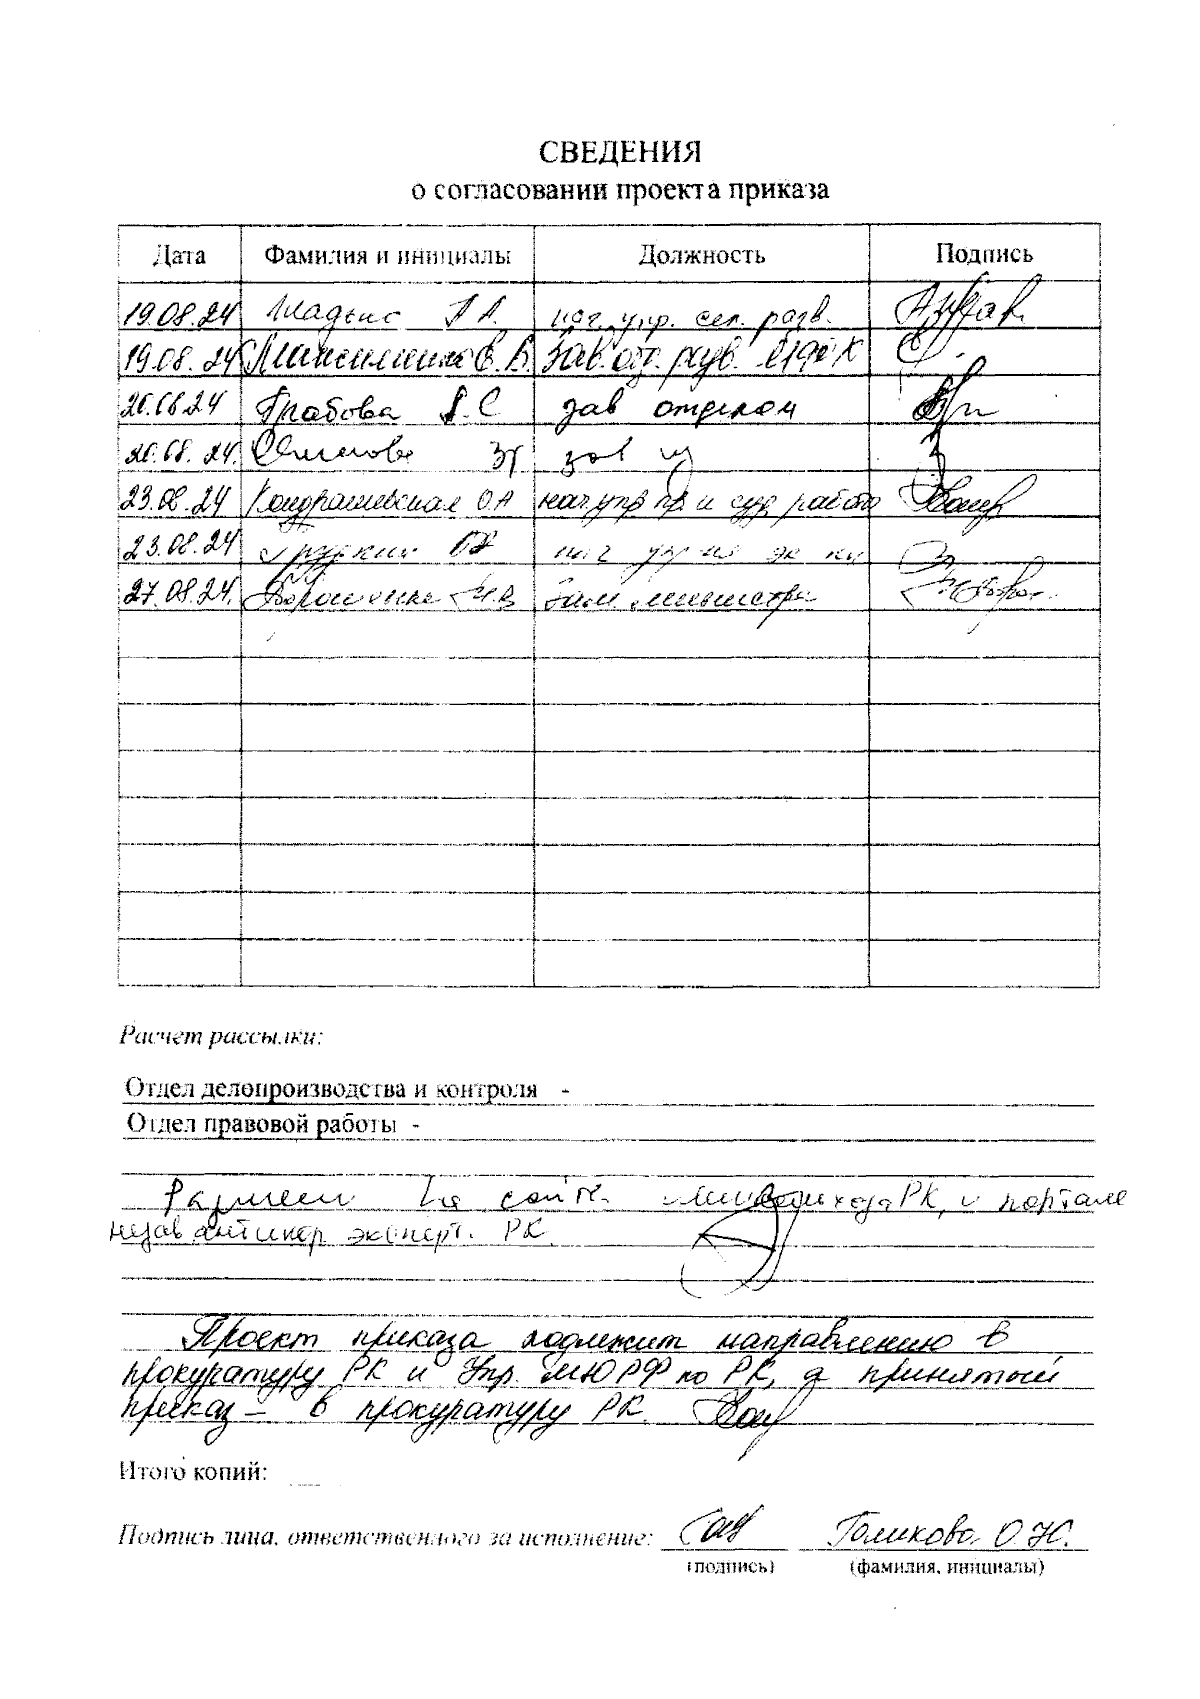 СВЕДЕНИЯ
о согласовании проекта приказа
Дата Фамилия и инициалы Должность Подпись
19.08.24 нач. упр. сел. разв.
19.08.24 Максименко Е.В. Зав. отд. разв.
20.08.24 Грабова С зав отделом
20.08.24. зав
23.08.24 Кондрашевская О.А нач. упр пр. и суд работы
23.08.24 нач
27.08.24. зам. министра
Расчет рассылки:
Отдел делопроизводства и контроля -
Отдел правовой работы -
на сайте РК, и портале
незав антикор эксперт. РК.
Проект приказа подлежит направлению в
прокуратуру РК и Упр. МЮ РФ по РК, а принятый
приказ – в прокуратуру РК.
Итого копий:
Подпись лица, ответственного за исполнение: Голикова О.Ю.
(подпись) (фамилия, инициалы)